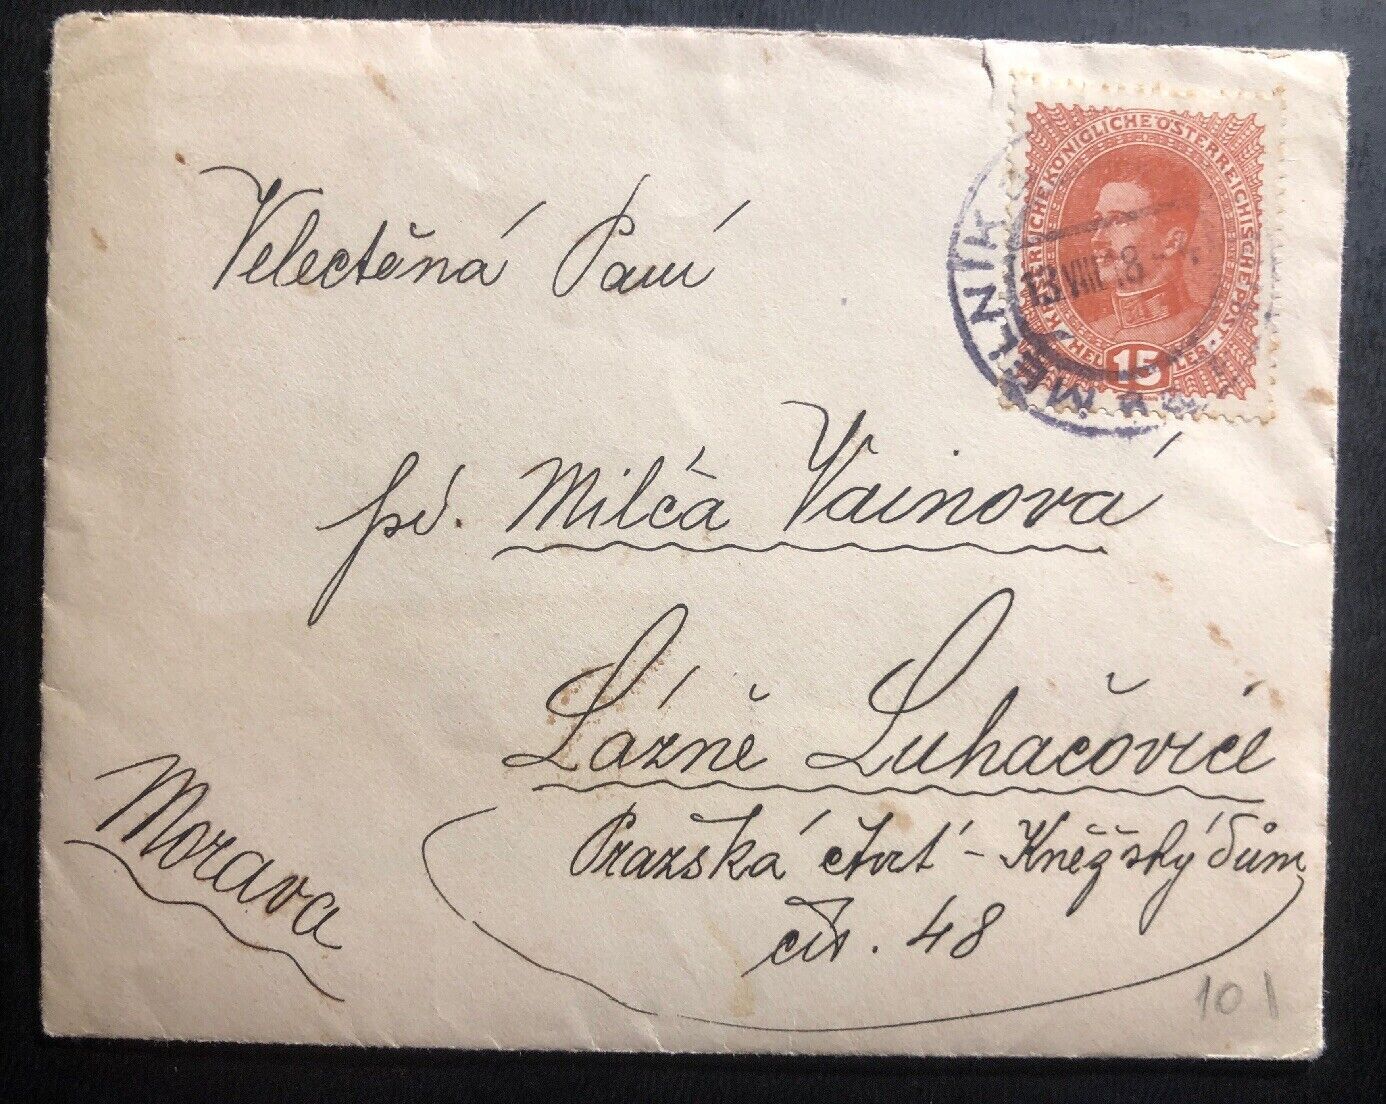 KAISERLICHE KÖNIGLICHE ÖSTERREICHISCHE POST
HELLER
15
MĚLNÍK
13 VIII 18
Velectěná Paní
pí. Milča Vainová
Lázně Luhačovice
Pražská čtvrť - Kněžský dům
čís. 48
Morava
10